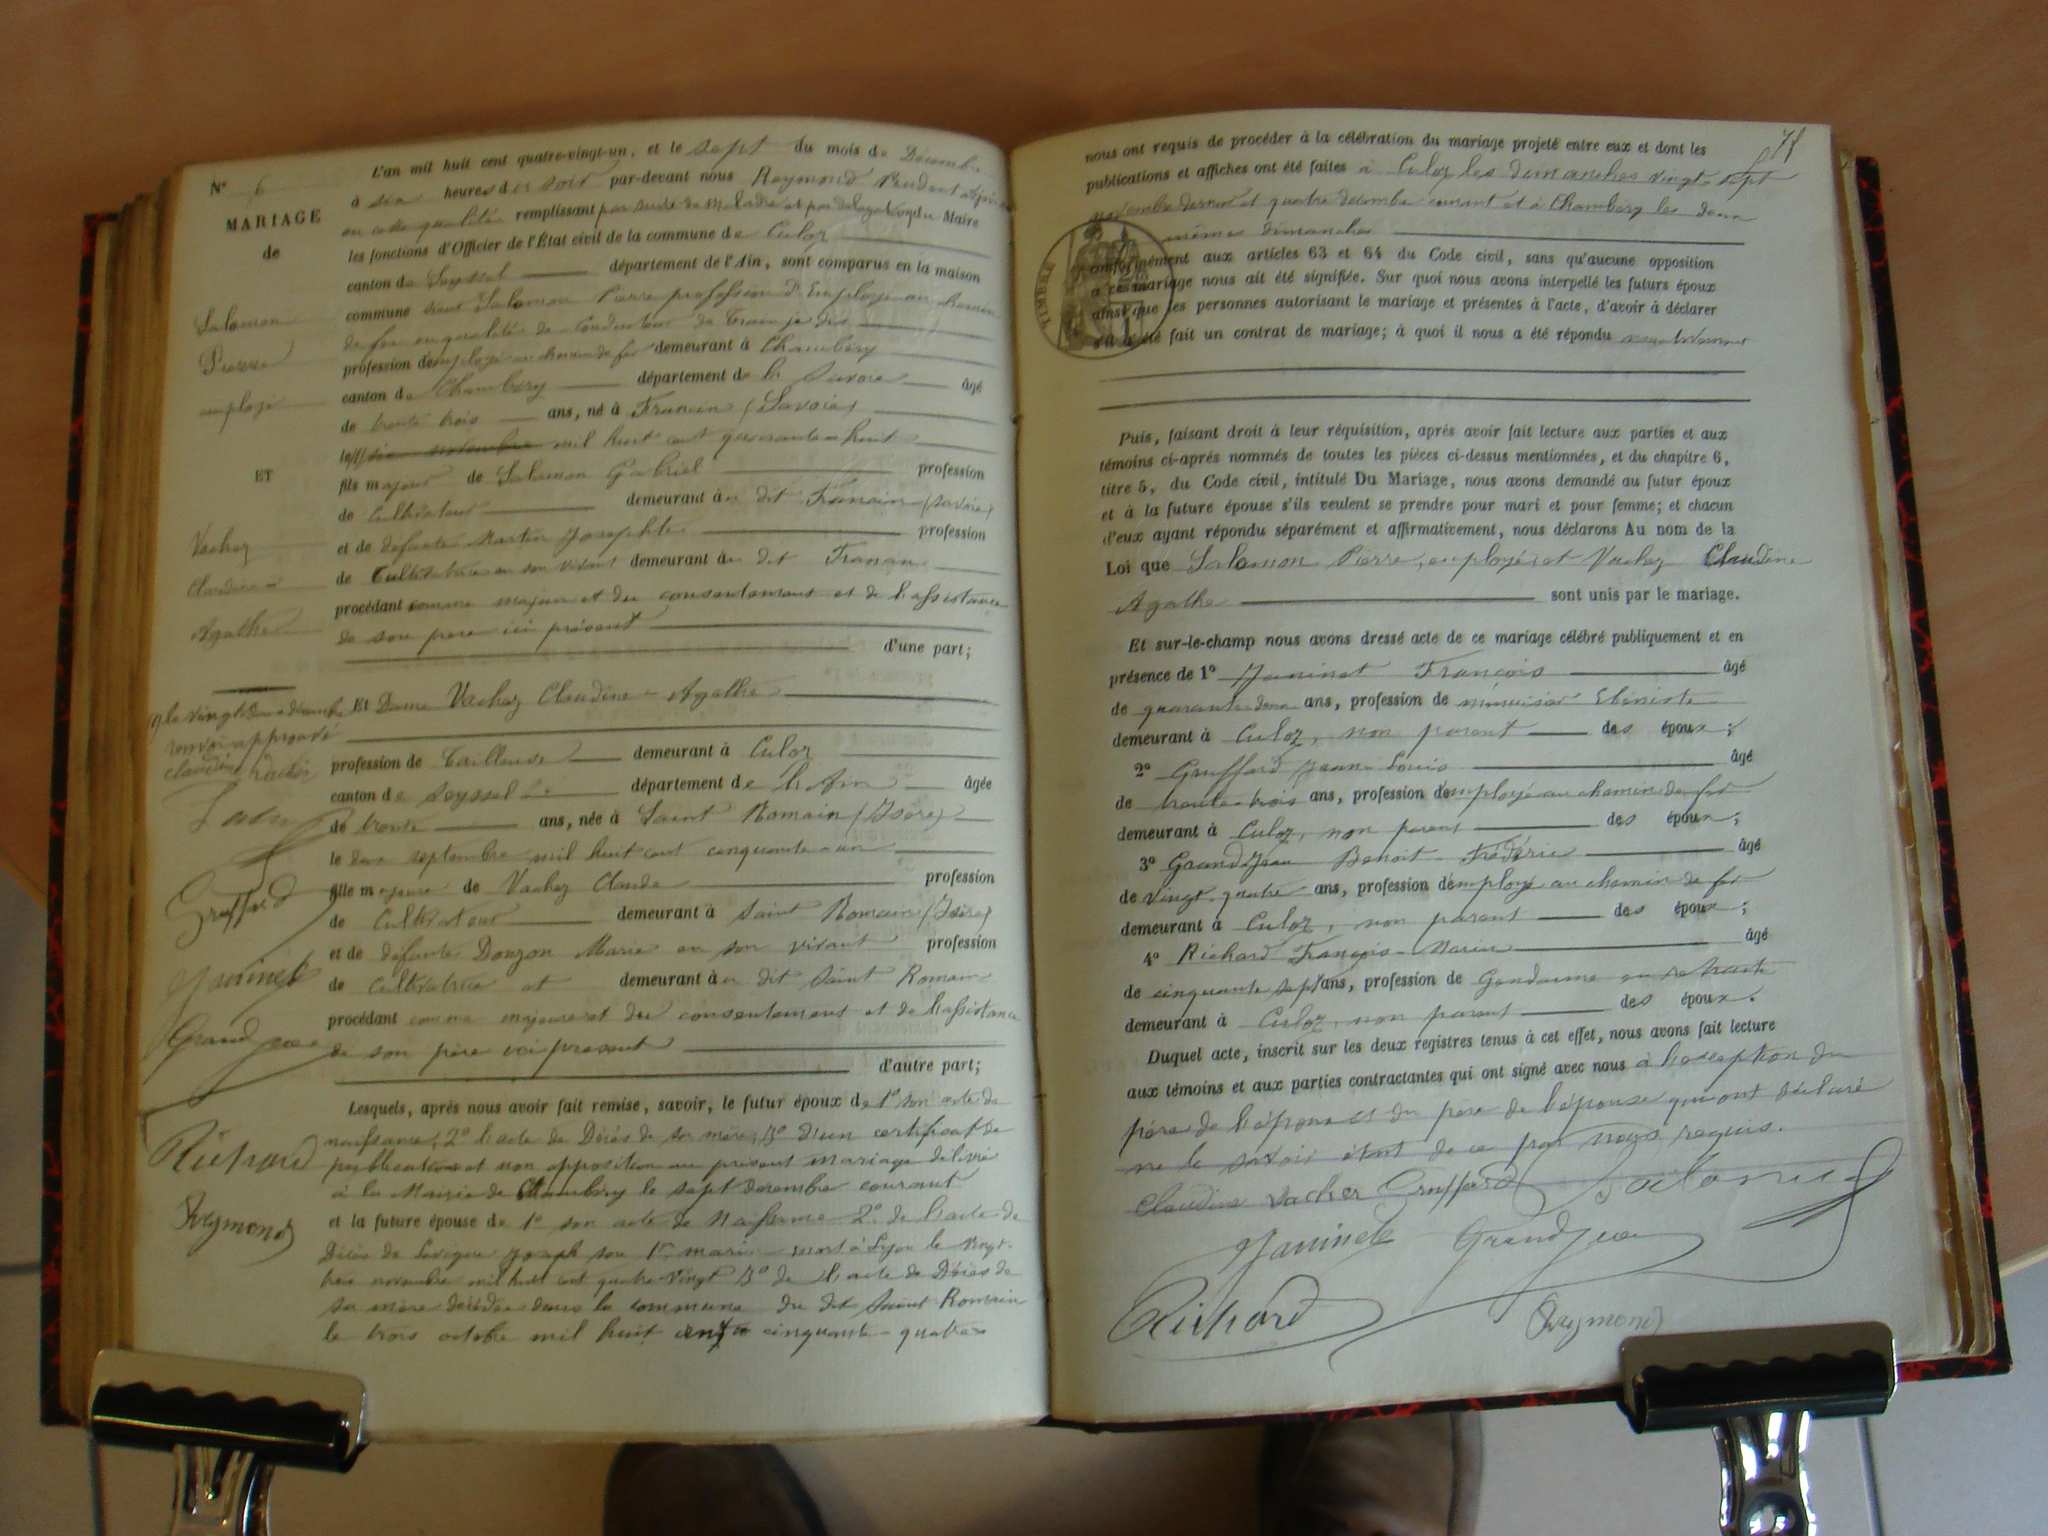 N° 6
MARIAGE
de
Salomon
Pierre
employé
ET
Vachez
Claudine
Agathe
L'an mil huit cent quatre-vingt-un, et le sept du mois de Décembre
à six heures du soir par-devant nous Reymond Prudent adjoint
en cette qualité remplissant par suite de maladie et par délégation du Maire
les fonctions d'Officier de l'État civil de la commune de Culoz
canton de Seyssel département de l'Ain, sont comparus en la maison
commune sieur Salomon Pierre profession d'Employé au chemin
de fer en qualité de Conducteur de train je dis
profession d'employé au chemin de fer demeurant à Chambéry
canton de Chambéry département de la Savoie âgé
de trente trois ans, né à Francin (Savoie)
le six novembre mil huit cent quarante-huit
fils majeur de Salomon Gabriel profession
de Cultivateur demeurant au dit Francin (Savoie)
et de défunte Martin Josephte profession
de Cultivatrice en son vivant demeurant au dit Francin
procédant comme majeur et du consentement et de l'assistance
de son père ici présent
d'une part;
le vingt deux décembre
renvoi approuvé
Claudine Vacher
Salomon
Gruffard
Janinet
Grandjean
Richard
Reymond
Et Dame Vachez Claudine-Agathe
profession de Tailleuse demeurant à Culoz
canton de Seyssel département de l'Ain âgée
de trente ans, née à Saint Romain (Isère)
le dix septembre mil huit cent cinquante-un
fille majeure de Vachez Claude profession
de Cultivateur demeurant à Saint Romain (Isère)
et de défunte Douzon Marie en son vivant profession
de Cultivatrice et demeurant au dit Saint Romain
procédant comme majeure et du consentement et de l'assistance
de son père ici présent
d'autre part;
Lesquels, après nous avoir fait remise, savoir, le futur époux de 1° son acte de
naissance; 2° l'acte de Décès de sa mère; 3° d'un certificat de
publication et non opposition au présent mariage délivré
à la Mairie de Chambéry le sept décembre courant
et la future épouse de 1° son acte de Naissance 2° de l'acte de
Décès de Joseph son 1er mari mort à Lyon le vingt-
trois novembre mil huit cent quatre-vingt 3° de l'acte de Décès de
sa mère décédée dans la commune du dit Saint Romain
le trois octobre mil huit cent cinquante-quatre
71
nous ont requis de procéder à la célébration du mariage projeté entre eux et dont les
publications et affiches ont été faites à Culoz les dimanches vingt-sept
novembre dernier et quatre décembre courant et à Chambéry les deux
mêmes dimanches
TIMBRE
conformément aux articles 63 et 64 du Code civil, sans qu'aucune opposition
à ce mariage nous ait été signifiée. Sur quoi nous avons interpellé les futurs époux
ainsi que les personnes autorisant le mariage et présentes à l'acte, d'avoir à déclarer
s'il a été fait un contrat de mariage; à quoi il nous a été répondu négativement
Puis, faisant droit à leur réquisition, après avoir fait lecture aux parties et aux
témoins ci-après nommés de toutes les pièces ci-dessus mentionnées, et du chapitre 6,
titre 5, du Code civil, intitulé Du Mariage, nous avons demandé au futur époux
et à la future épouse s'ils veulent se prendre pour mari et pour femme; et chacun
d'eux ayant répondu séparément et affirmativement, nous déclarons Au nom de la
Loi que Salomon Pierre, employé, et Vachez Claudine
Agathe sont unis par le mariage.
Et sur-le-champ nous avons dressé acte de ce mariage célébré publiquement et en
présence de 1° Janinet François âgé
de quarante-deux ans, profession de menuisier Ebéniste
demeurant à Culoz, non parent des époux;
2° Gruffard Jean-Louis âgé
de trente-trois ans, profession d'employé au chemin de fer
demeurant à Culoz, non parent des époux;
3° Grandjean Benoit-Frédéric âgé
de vingt-quatre ans, profession d'employé au chemin de fer
demeurant à Culoz, non parent des époux;
4° Richard François-Marin âgé
de cinquante sept ans, profession de Gendarme en retraite
demeurant à Culoz, non parent des époux.
Duquel acte, inscrit sur les deux registres tenus à cet effet, nous avons fait lecture
aux témoins et aux parties contractantes qui ont signé avec nous à l'exception du
père de l'époux et du père de l'épouse qui ont déclaré
ne le savoir étant de ce par nous requis.
Claudine Vacher Gruffard Salomon
Janinet Grandjean
Richard Reymond